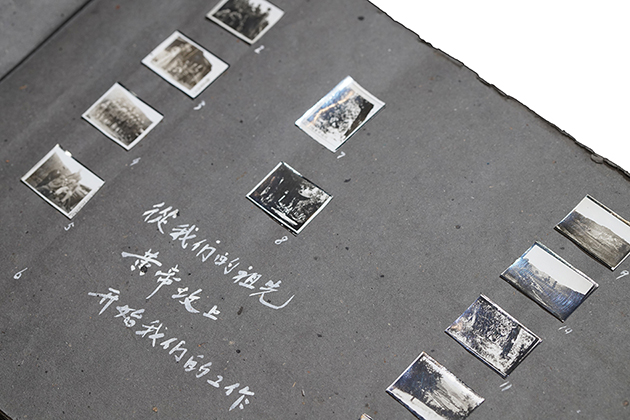 2
3
4
5
6
7
8
從我们的祖先
黄帝坟上
开始我们的工作
9
10
11